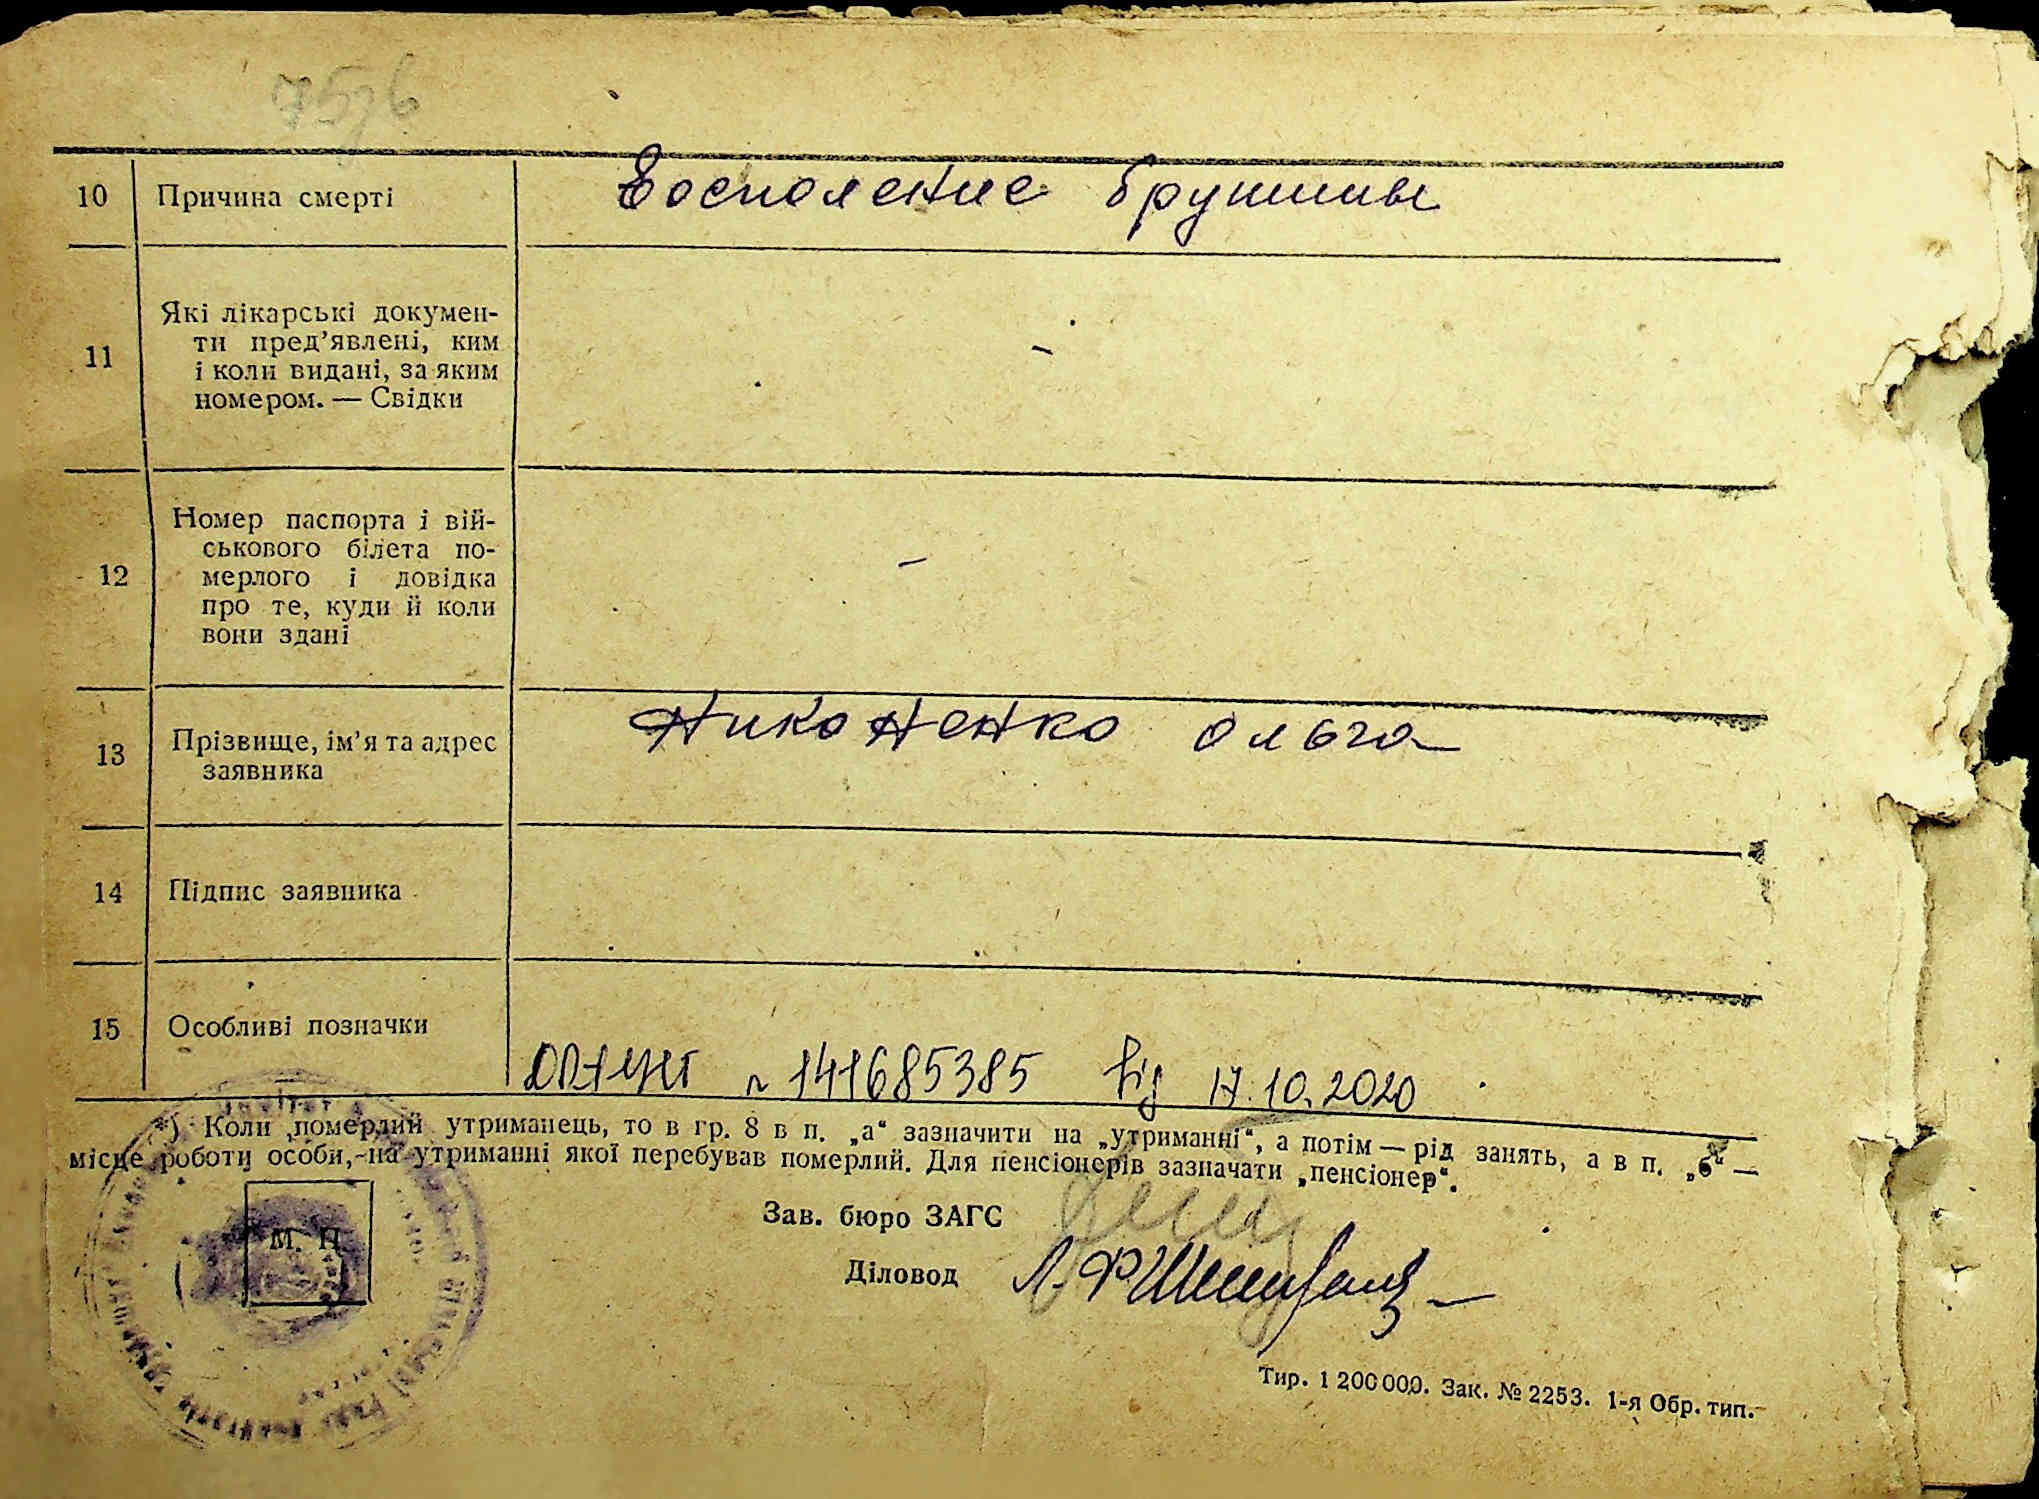 10 Причина смерті Восполение брушины
11 Які лікарські докумен-
ти пред’явлені, ким
і коли видані, за яким
номером. — Свідки
-
12 Номер паспорта і вій-
ськового білета по-
мерлого і довідка
про те, куди й коли
вони здані
-
13 Прізвище, ім’я та адрес
заявника
Никоненко Ольга
14 Підпис заявника
15 Особливі позначки
№ 141685385 від 17.10.2020
*) Коли померлий утриманець, то в гр. 8 в п. „а“ зазначити на „утриманні“, а потім — рід занять, а в п. „б“ —
місце роботи особи, на утриманні якої перебував померлий. Для пенсіонерів зазначати „пенсіонер“.
М. П.
Зав. бюро ЗАГС
Діловод
Тир. 1 200 000. Зак. № 2253. 1-я Обр. тип.